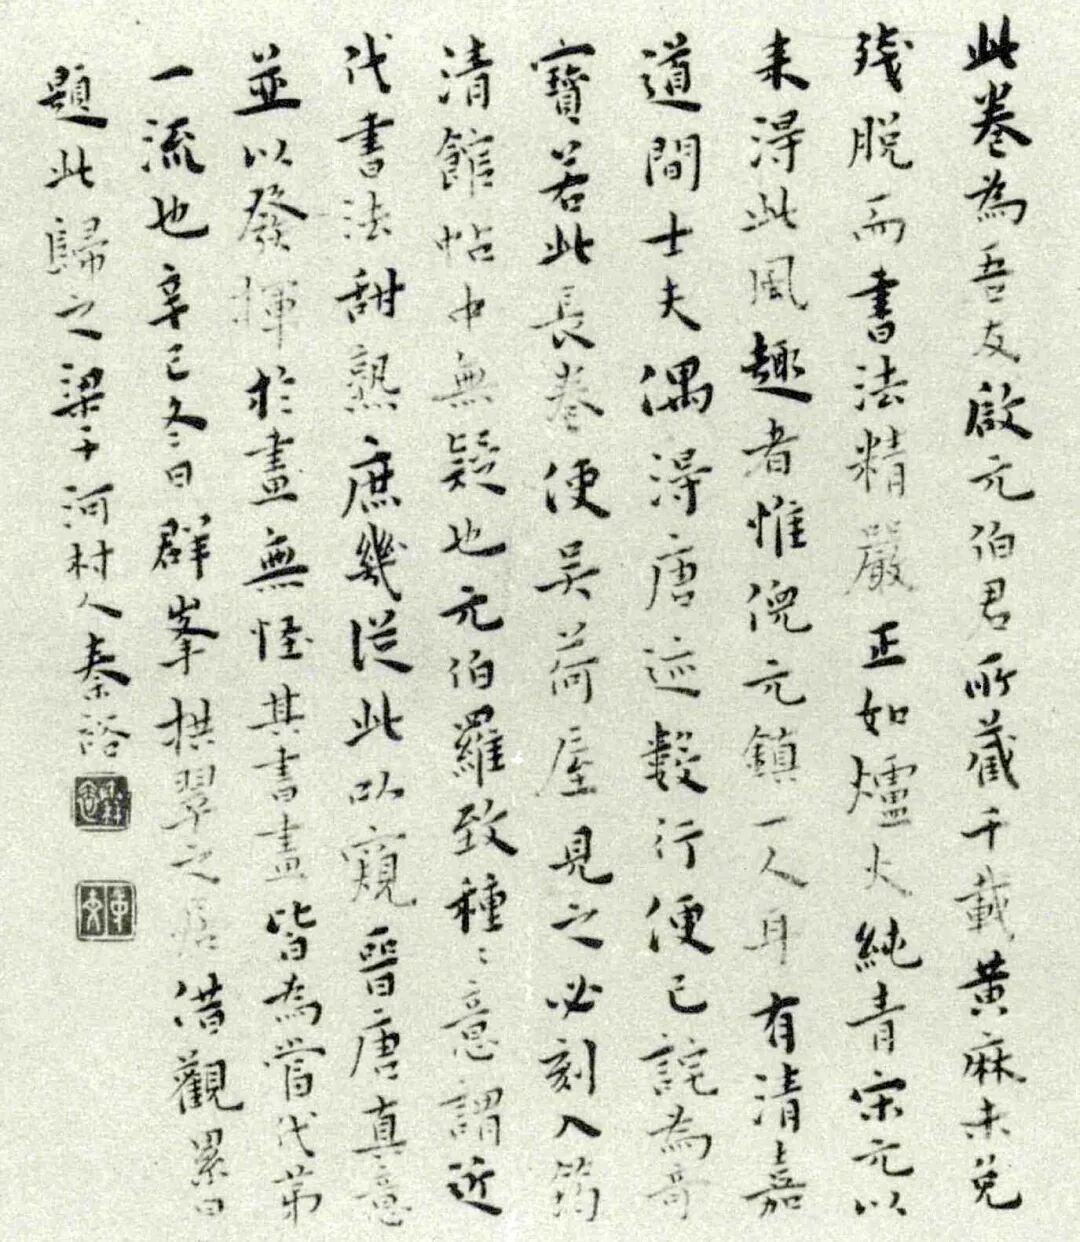 此卷為吾友啟元伯君所藏千載黃麻未免
殘脫而書法精嚴正如爐火純青宋元以
来淂此風趣者惟倪元鎮一人耳有清嘉
道間士夫偶淂唐迹數行便已詫為奇
寶若此長卷使吴荷屋見之必刻入筠
清館帖中無疑也元伯羅致種〻意謂近
代書法甜熟庶幾从此以窺晉唐真意
並以發揮於畫無怪其書畫皆為當代第
一流也辛巳冬日群峯拱翠之居借觀累日
題此歸之梁子河村人秦裕